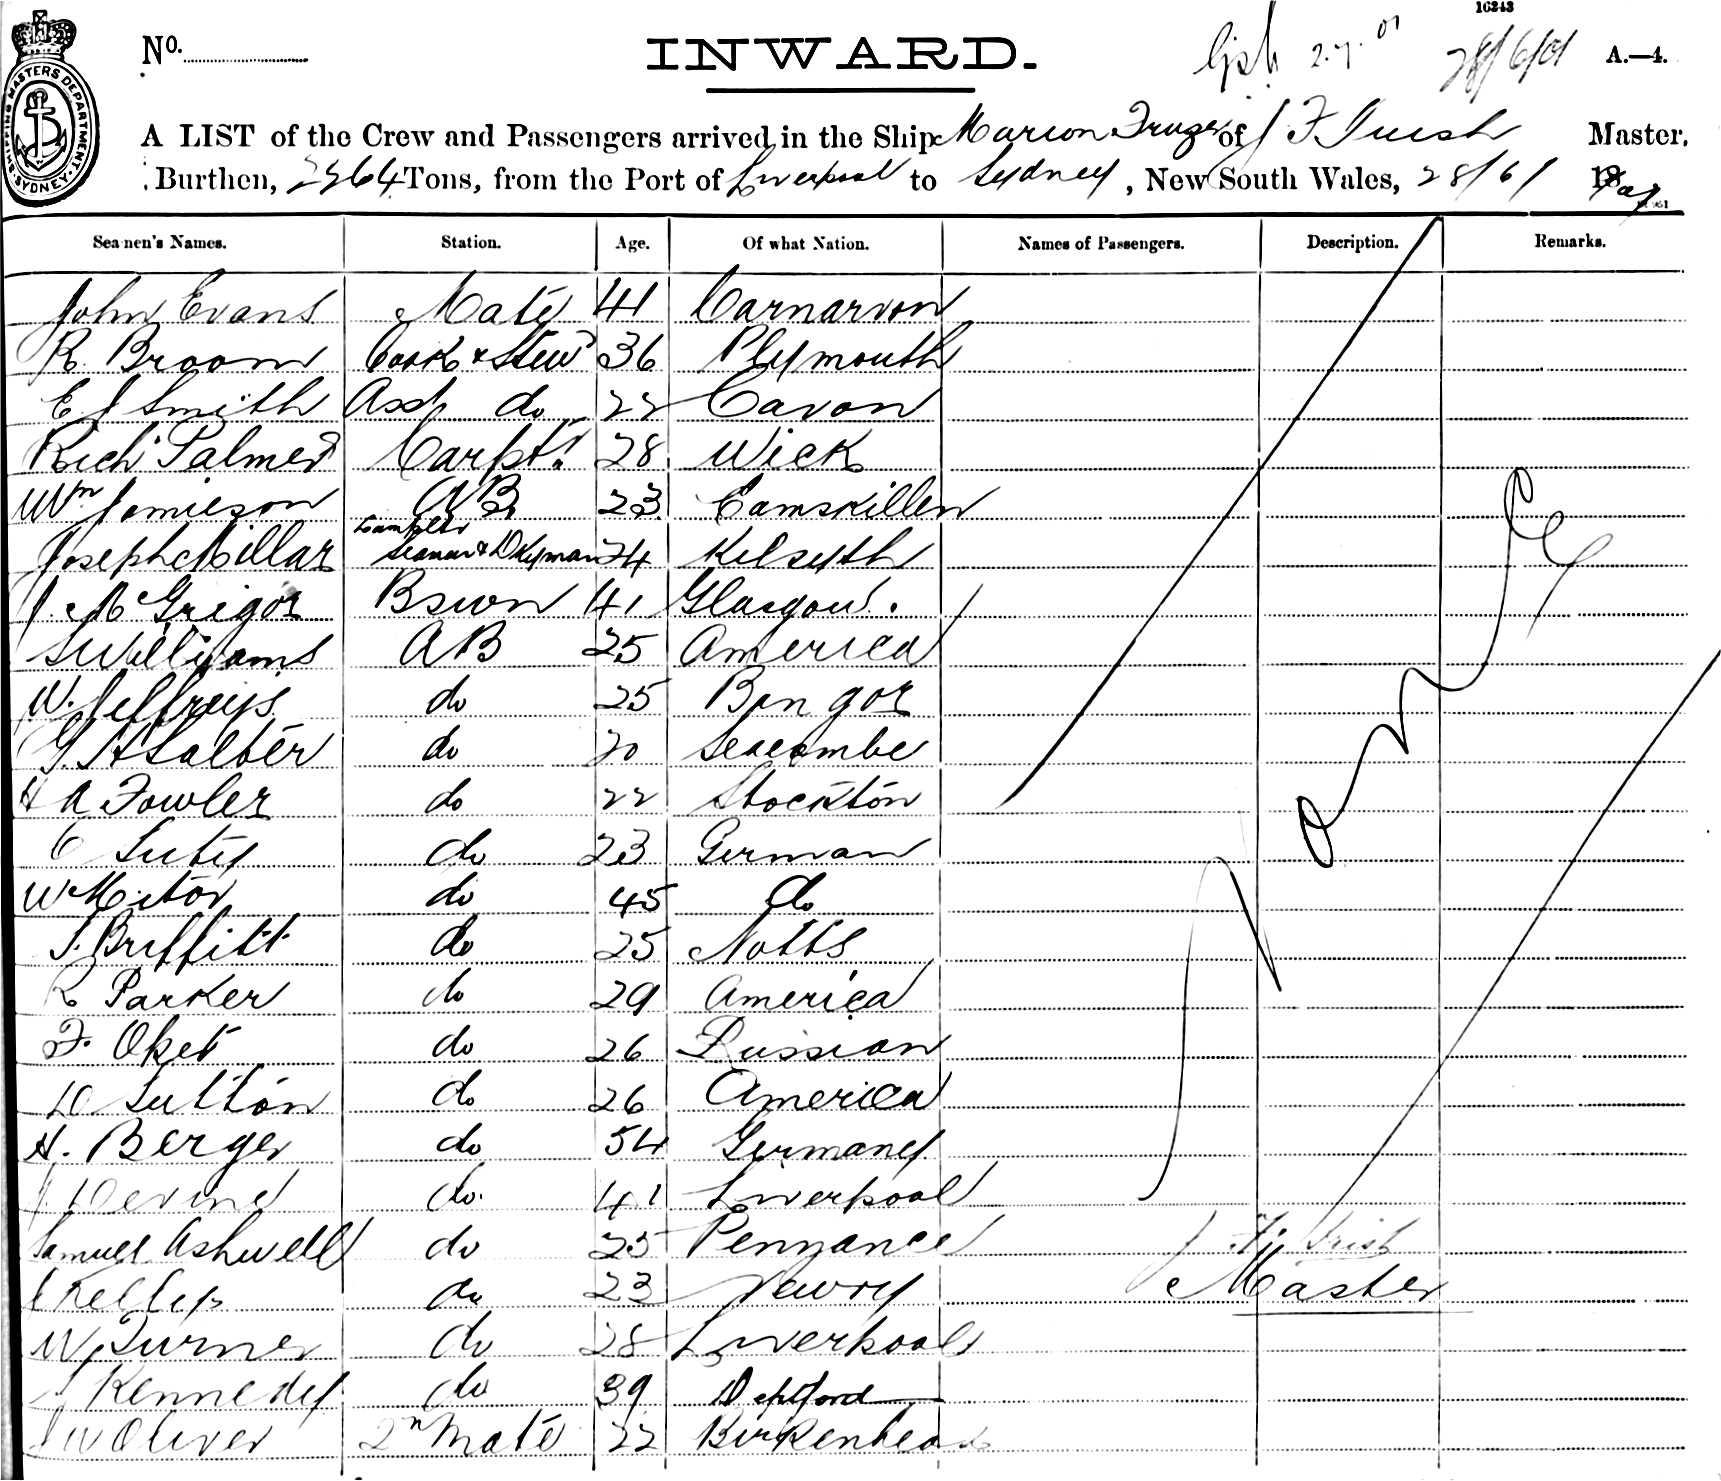 16243
No. INWARD. 2.7.01 28/6/01 A.—4.
SHIPPING MASTERS DEPARTMENT. SYDNEY.
A LIST of the Crew and Passengers arrived in the Ship Marion of J F Master,
Burthen, Tons, from the Port of Liverpool to Sydney, New South Wales, 28/6/
Seamen's Names. Station. Age. Of what Nation. Names of Passengers. Description. Remarks.
John Evans Mate 41 Carnarvon
R. Broom Cook & Stewd 36 Plymouth
E J Smith Asst do 22 Cavan
Richd Palmer Carptr. 28 Wick
Wm Jamieson AB 23
Lamps
Joseph Millar Seaman & Dkyman 24 Kilsyth
J. McGrigor Bswn 41 Glasgow.
S Williams AB 25 America
W. Jeffreys do 25 Bangor
G. H Salter do 20 Seacombe
H A Fowler do 22 Stockton
C do 23 German
W do 45 do
do 25 Notts
R Parker do 29 America
F. Oket do 26 Russian
D Sutton do 26 America
H. Berger do 54 Germany
J. Devine do. 41 Liverpool
Samuel Ashwell do 25 Penzance
J Kelly do 23 Newry
W Turner do 28 Liverpool
J Kennedy do 39 Deptford
J W Oliver 2nd Mate 22 Birkenhead
None
J F Irish
Master